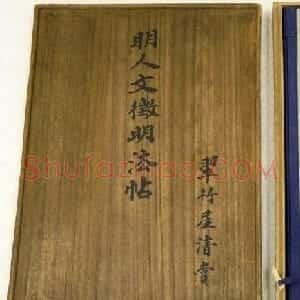 明人文徵明墨帖
翠竹居清赏
Shufazidian.COM